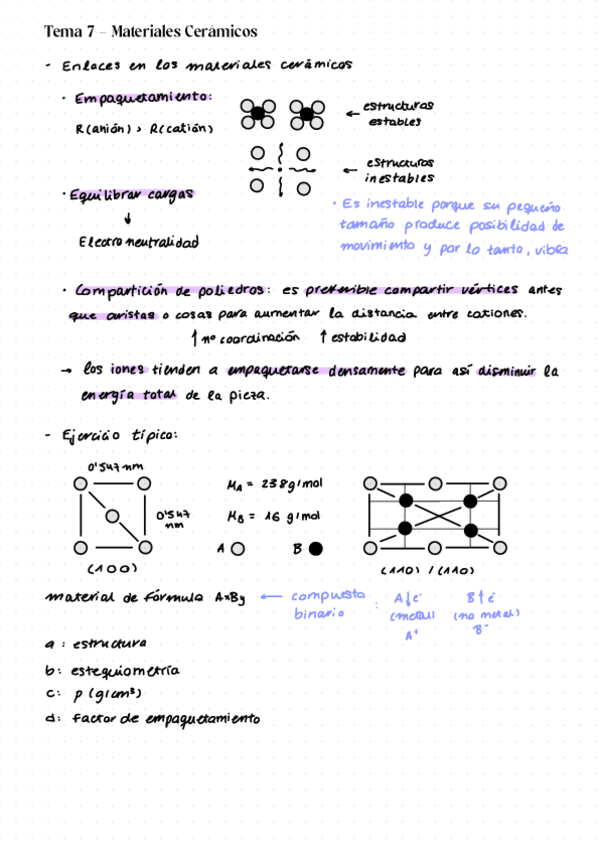 Tema 7 – Materiales Cerámicos
- Enlaces en los materiales cerámicos
· Empaquetamiento:
R(anión) > R(catión)
← estructuras
estables
← estructuras
inestables
· Equilibrar cargas
↓
Electroneutralidad
· Es inestable porque su pequeño
tamaño produce posibilidad de
movimiento y por lo tanto, vibra
· Compartición de poliedros: es preferible compartir vértices antes
que aristas o cosas para aumentar la distancia entre cationes.
↑ nº coordinación ↑ estabilidad
→ los iones tienden a empaquetarse densamente para así disminuir la
energía total de la pieza.
- Ejercicio típico:
0'547 nm
0'547
nm
(100)
MA = 238 g/mol
MB = 16 g/mol
A B
(110) / (110)
material de fórmula AxBy ← compuesto
binario
: A↓e⁻
(metal)
A⁺
B↑e⁻
(no metal)
B⁻
a: estructura
b: estequiometría
c: ρ (g/cm³)
d: Factor de empaquetamiento